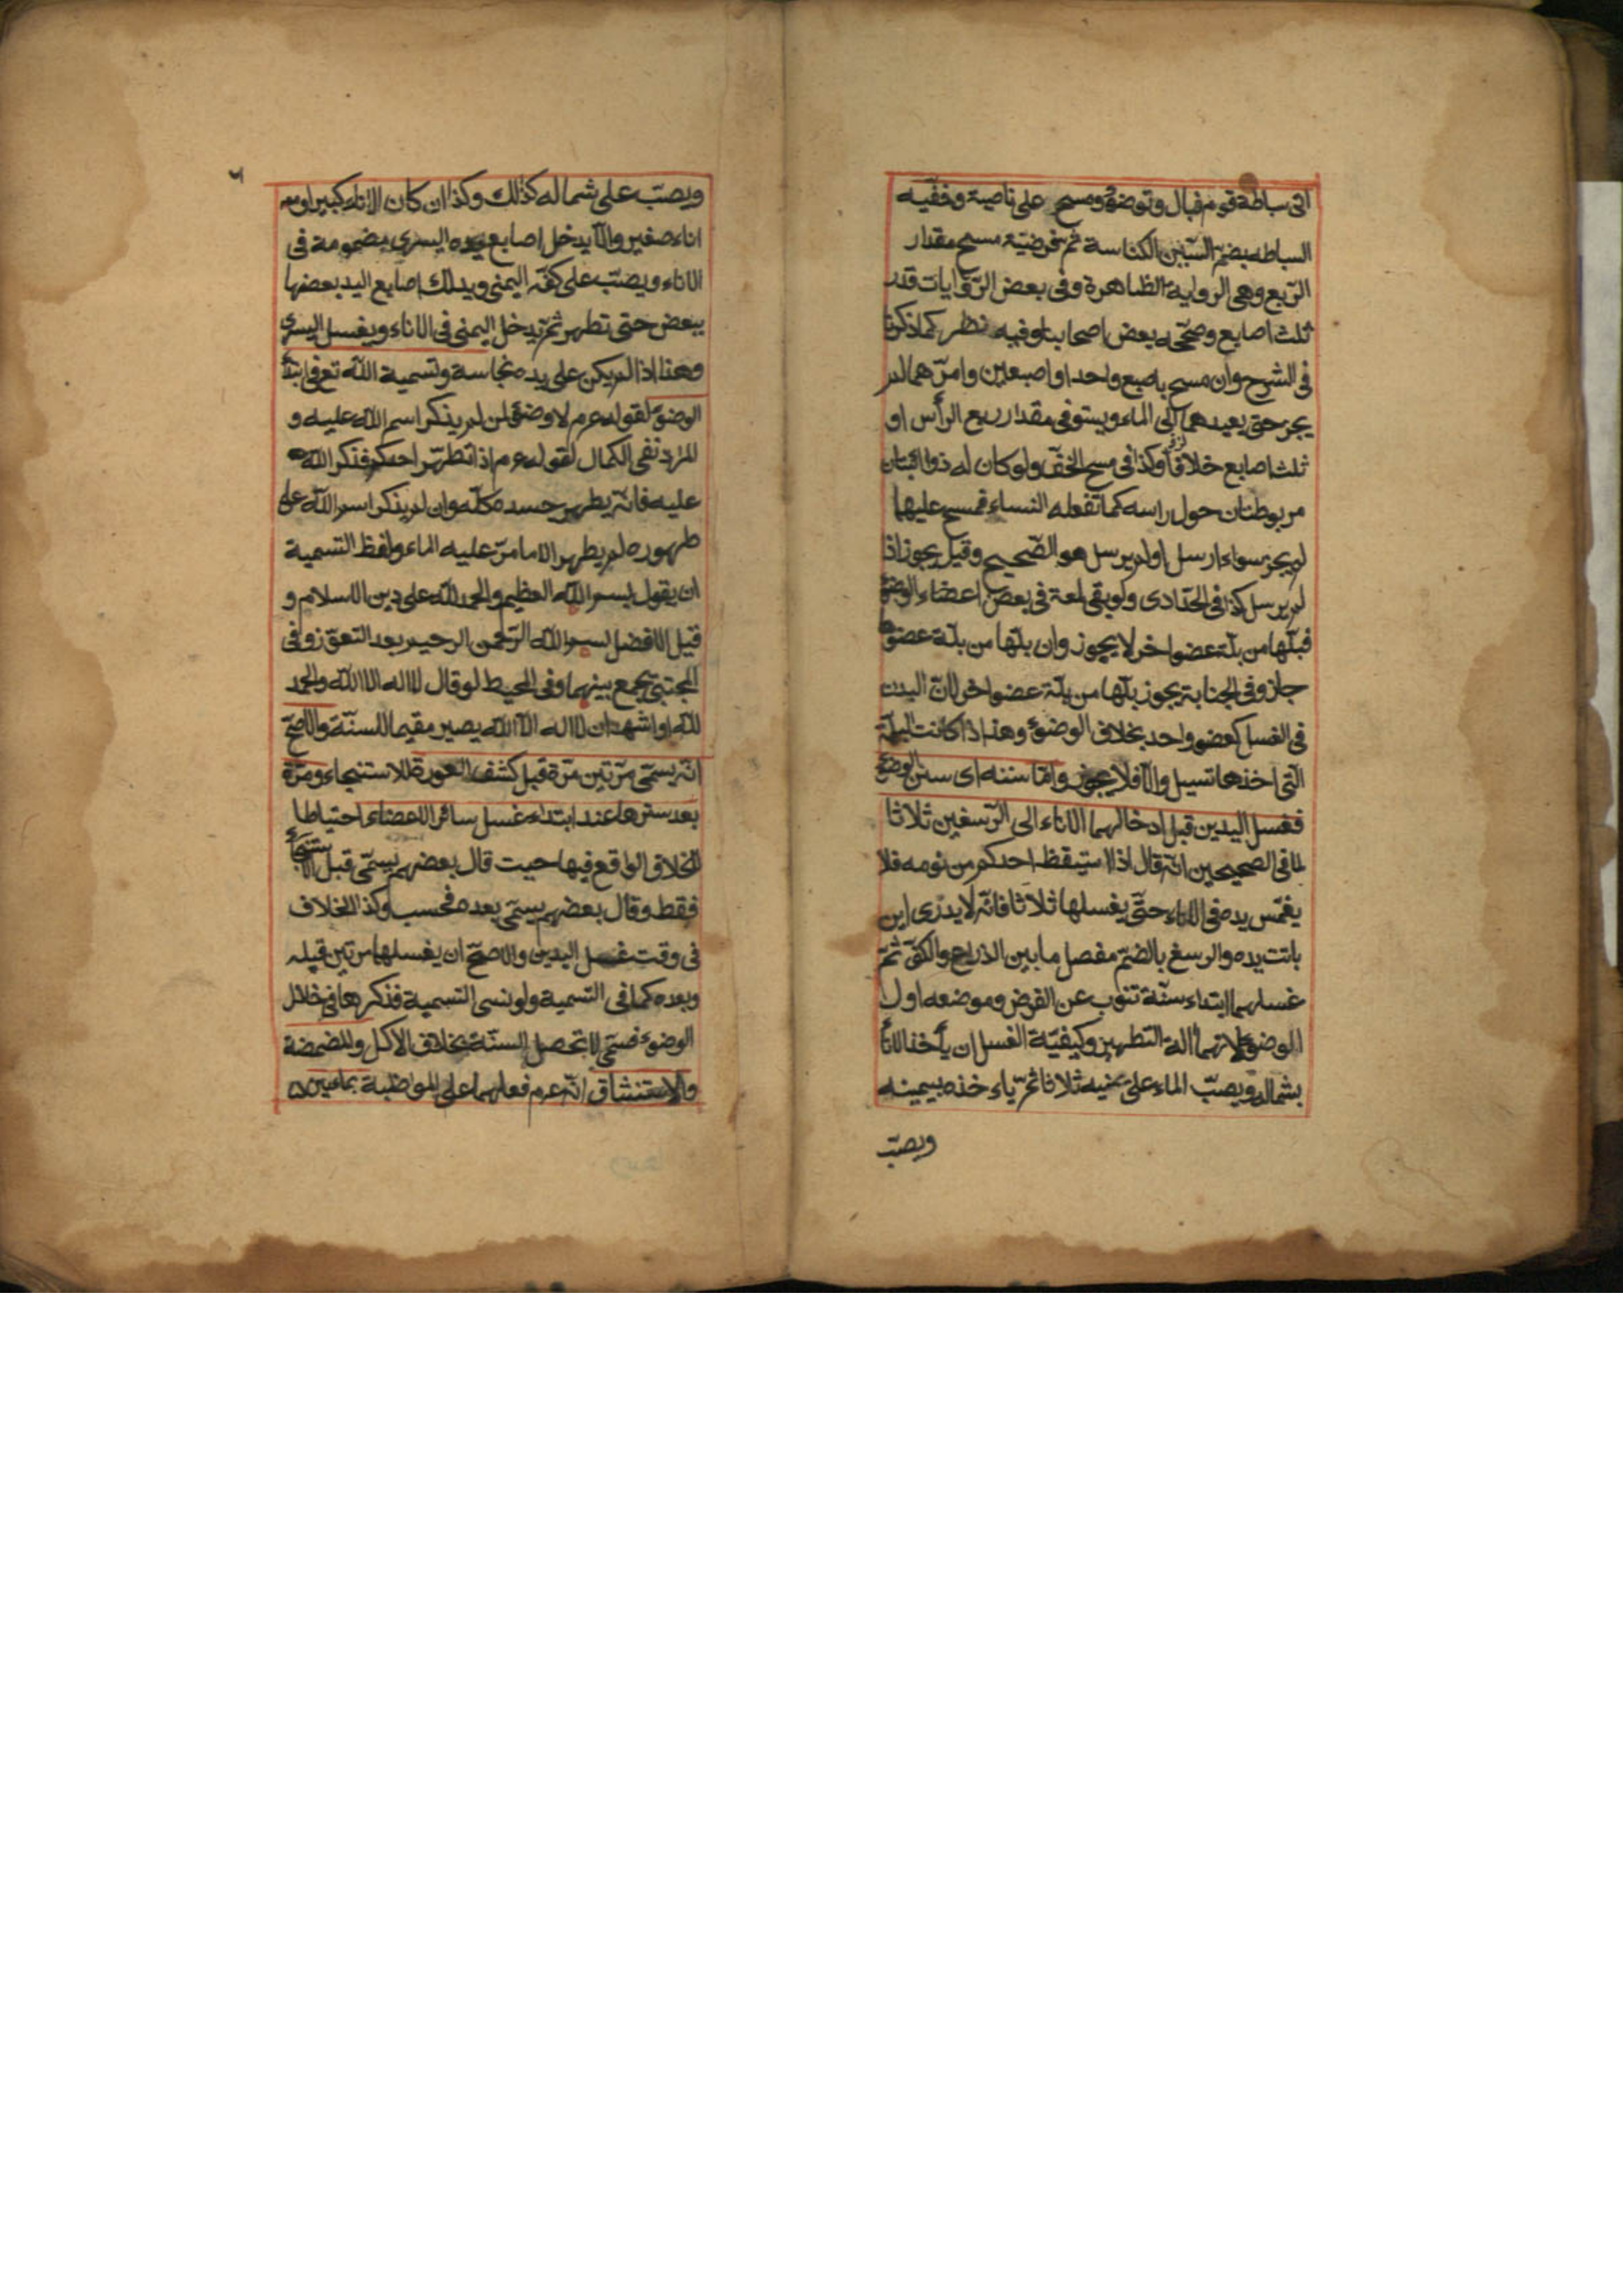 اتى سباطة قوم فبال وتوضؤ ومسح على ناصية وخفّيه
السباطه بضمّ السّين الكناسة ثم فرضيّة مسح مقدار
الرّبع وهى الرواية الظاهرة وفى بعض الرّوايات قدر
ثلث اصابع وصحّحه بعض اصحابنا وفيه نظر كما ذكرنا
فى الشرح وان مسح باصبع واحد او اصبعين وامرّهما لم
يجز حتى يعيدهما الى الماء ويستوفى مقدار ربع الرأس او
ثلث اصابع خلافا وكذا فى مسح الخفّ ولو كان له ذوائبتان
مربوطتان حول راسه كما تفعله النساء فمسح عليها
لم يجز سواء ارسل او لم يرسل هو الصّحيح وقيل يجوز اذا
لم يرسل كذا فى الحدّادى ولو بقى لمعة فى بعض اعضاء الوضؤ
فبلّها من بلّة عضو اخر لا يجوز وان بلّها من بلّة عضوها
جاز وفى الجنابة يجوز بلّها من بلّة عضو اخر لانّ البدن
فى الغسل كعضو واحد بخلاف الوضوء وهذا اذا كانت البلّة
الّتى اخذها تسيل والّا فلا يجوز وامّا سننه اى سنن الوضؤ
فغسل اليدين قبل ادخالهما الاناء الى الرّسغين ثلاثا
لما فى الصحيحين انّه قال اذا استيقظ احدكم من نومه فلا
يغمّس يده فى الاناء حتّى يغسلها ثلاثا فانّه لا يدرى اين
باتت يده والرسغ بالضمّ مفصل ما بين الذراع والكفّ ثمّ
غسلهما ابتداء سنّة تنوب عن الفرض وموضعه اول
الوضوء لانهما الة التطهير وكيفيّة الغسل ان يأخذ الاناء
بشماله ويصبّ الماء على يمنيه ثلاثا ثمّ ياء خذه بيمينه
ويصبّ
٦
ويصبّ على شماله كذلك وكذا ان كان الاناء كبيرا ومعه
اناء صغير والّا يدخل اصابع يده اليسرى مضمومة فى
الاناء ويصبّ على كفّه اليمنى ويدلك اصابع اليد بعضها
ببعض حتى تطهر ثمّ يدخل اليمنى فى الاناء ويغسل اليسرى
وهذا اذا لم يكن على يده نجاسة وتسمية اللّه تع فى ابتداء
الوضوء لقوله عرم لا وضوء لمن لم يذكر اسم اللّه عليه و
المراد نفى الكمال لقوله عرم اذا تطهّر احدكم فذكر اللّه
عليه فانّه يطهر جسده كلّه وان لم يذكر اسم اللّه على
طهوره لم يطهر الا ما مرّ عليه الماء ولفظ التسمية
ان يقول بسم اللّه العظيم والحمد للّه على دين الاسلام و
قيل الافضل بسم اللّه الرّحمن الرحيم بعد التعوّذ وفى
المجتبى يجمع بينهما وفى المحيط لو قال لا اله الا اللّه والحمد
للّه او اشهد ان لا اله الّا اللّه يصير مقيما للسنّة والاصحّ
انّه يسمّى مرّتين مرّة قبل كشف العورة للاستنجاء ومرّة
بعد سترها عند ابتداء غسل سائر الاعضاء احتياطا
للخلاف الواقع فيها حيت قال بعضهم يسمّى قبل الاستنجاء
فقط وقال بعضهم يسمّى بعده فحسب وكذا الخلاف
فى وقت غسل اليدين والاصحّ ان يغسلها مرتين قبله
وبعده كما فى التسمية ولو نسى التسمية فذكرها فى خلال
الوضوء فسمّى لا تحصل السنّة بخلاف الاكل والمضمضة
والاستنشاق انّه عرم فعلهما على المواظبة بمائين